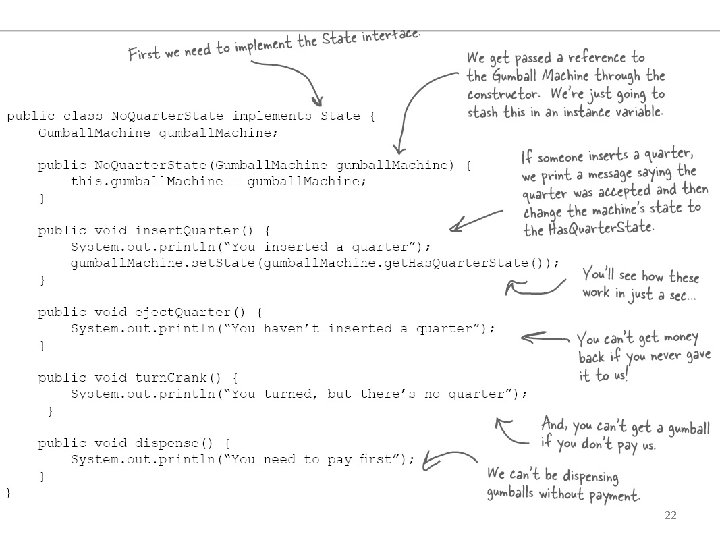 First we need to implement the State interface.
We get passed a reference to
the Gumball Machine through the
constructor. We're just going to
stash this in an instance variable.
public class NoQuarterState implements State {
GumballMachine gumballMachine;
public NoQuarterState(GumballMachine gumballMachine) {
this.gumballMachine = gumballMachine;
}
If someone inserts a quarter,
we print a message saying the
quarter was accepted and then
change the machine's state to
the HasQuarterState.
public void insertQuarter() {
System.out.println("You inserted a quarter");
gumballMachine.setState(gumballMachine.getHasQuarterState());
}
You'll see how these
work in just a sec...
public void ejectQuarter() {
System.out.println("You haven't inserted a quarter");
}
You can't get money
back if you never gave
it to us!
public void turnCrank() {
System.out.println("You turned, but there's no quarter");
}
And, you can't get a gumball
if you don't pay us.
public void dispense() {
System.out.println("You need to pay first");
}
We can't be dispensing
gumballs without payment.
}
22